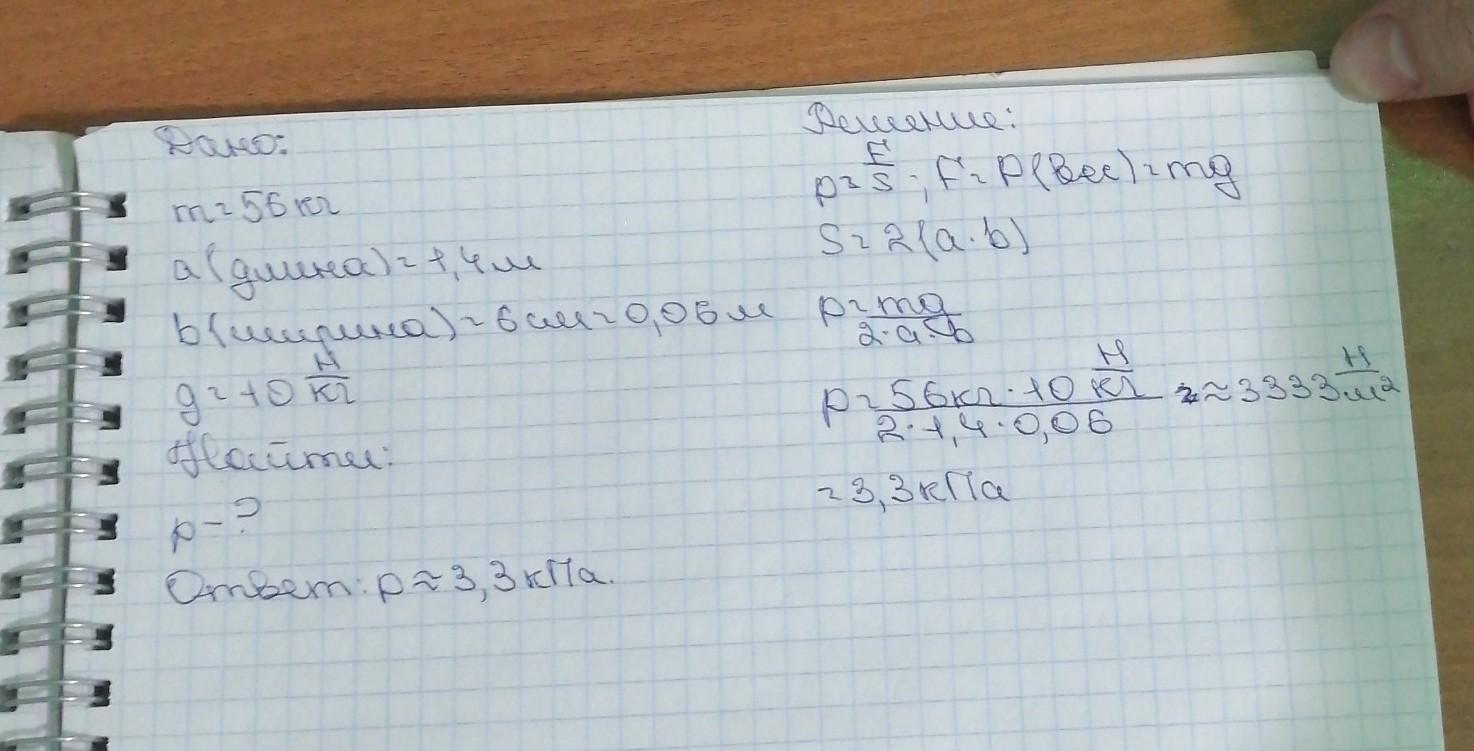 Дано:
m=56кг
a(длина)=1,4м
b(ширина)=6см=0,06м
g=10 Н/кг
Найти:
p-?
Ответ: p≈3,3кПа.
Решение:
p=F/S; F=P(Вес)=mg
S=2(a·b)
p=mg/2·a·b
p=56кг·10 Н/кг / 2·1,4·0,06 ≈3333 Н/м²
=3,3кПа